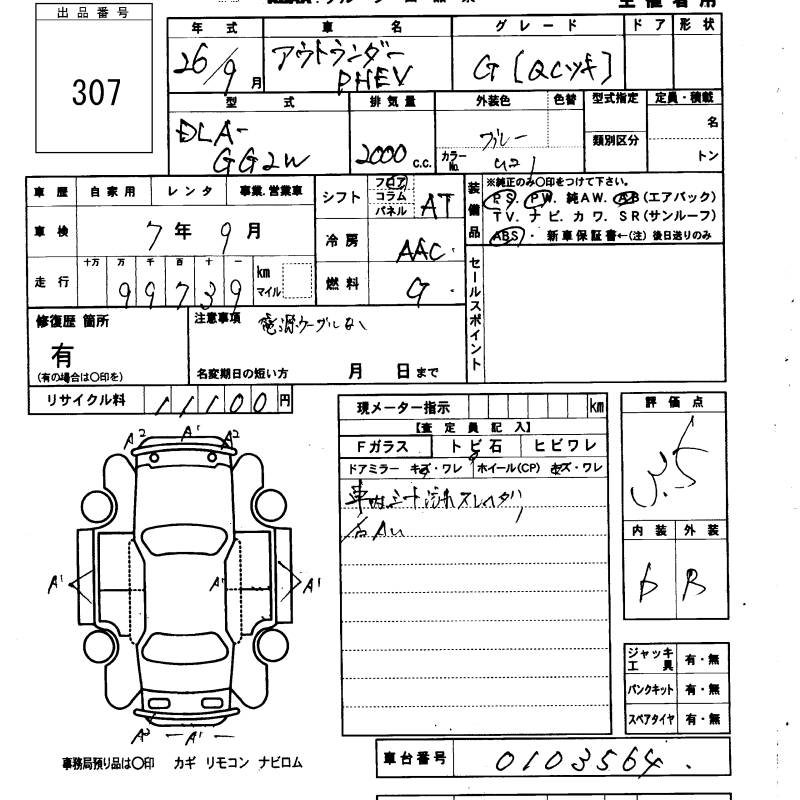 出品番号
307
年 式
車 名
グ レ ー ド
ド ア
形 状
26/9月
アウトランダー
PHEV
G [QCツキ]
型 式
排 気 量
外装色
色替
型式指定
定員・積載
DLA-
GG2W
2000 c.c.
ブルー
カラーNo.
類別区分
名
トン
車 歴
自 家 用
レ ン タ
事業.営業車
シフト
フロア
コラム
パネル
AT
装備品
※純正のみ〇印をつけて下さい。
PS. PW. 純AW. AB(エアバック)
TV. ナビ. カワ. SR(サンルーフ)
ABS・ 新車保証書←(注) 後日送りのみ
車 検
7年 9月
冷 房
AAC
走 行
十万 万 千 百 十 一
99739
km
マイル
燃 料
G
セールスポイント
修復歴 箇所
有
(有の場合は〇印を)
注意事項
電源ケーブルなし
名変期日の短い方 月 日まで
リサイクル料
11100円
現メーター指示
km
【査 定 員 記 入】
Fガラス
トビ石
ヒビワレ
ドアミラー キズ・ワレ
ホイール(CP) キズ・ワレ
車内シート汚れスレ
評 価 点
3.5
内 装
外 装
D
B
A2
A1
A2
A1
A1
A1
A2 - A1 -
ジャッキ
工 具
有・無
パンクキット
有・無
スペアタイヤ
有・無
事務局預り品は〇印 カギ リモコン ナビロム
車台番号
0103564.